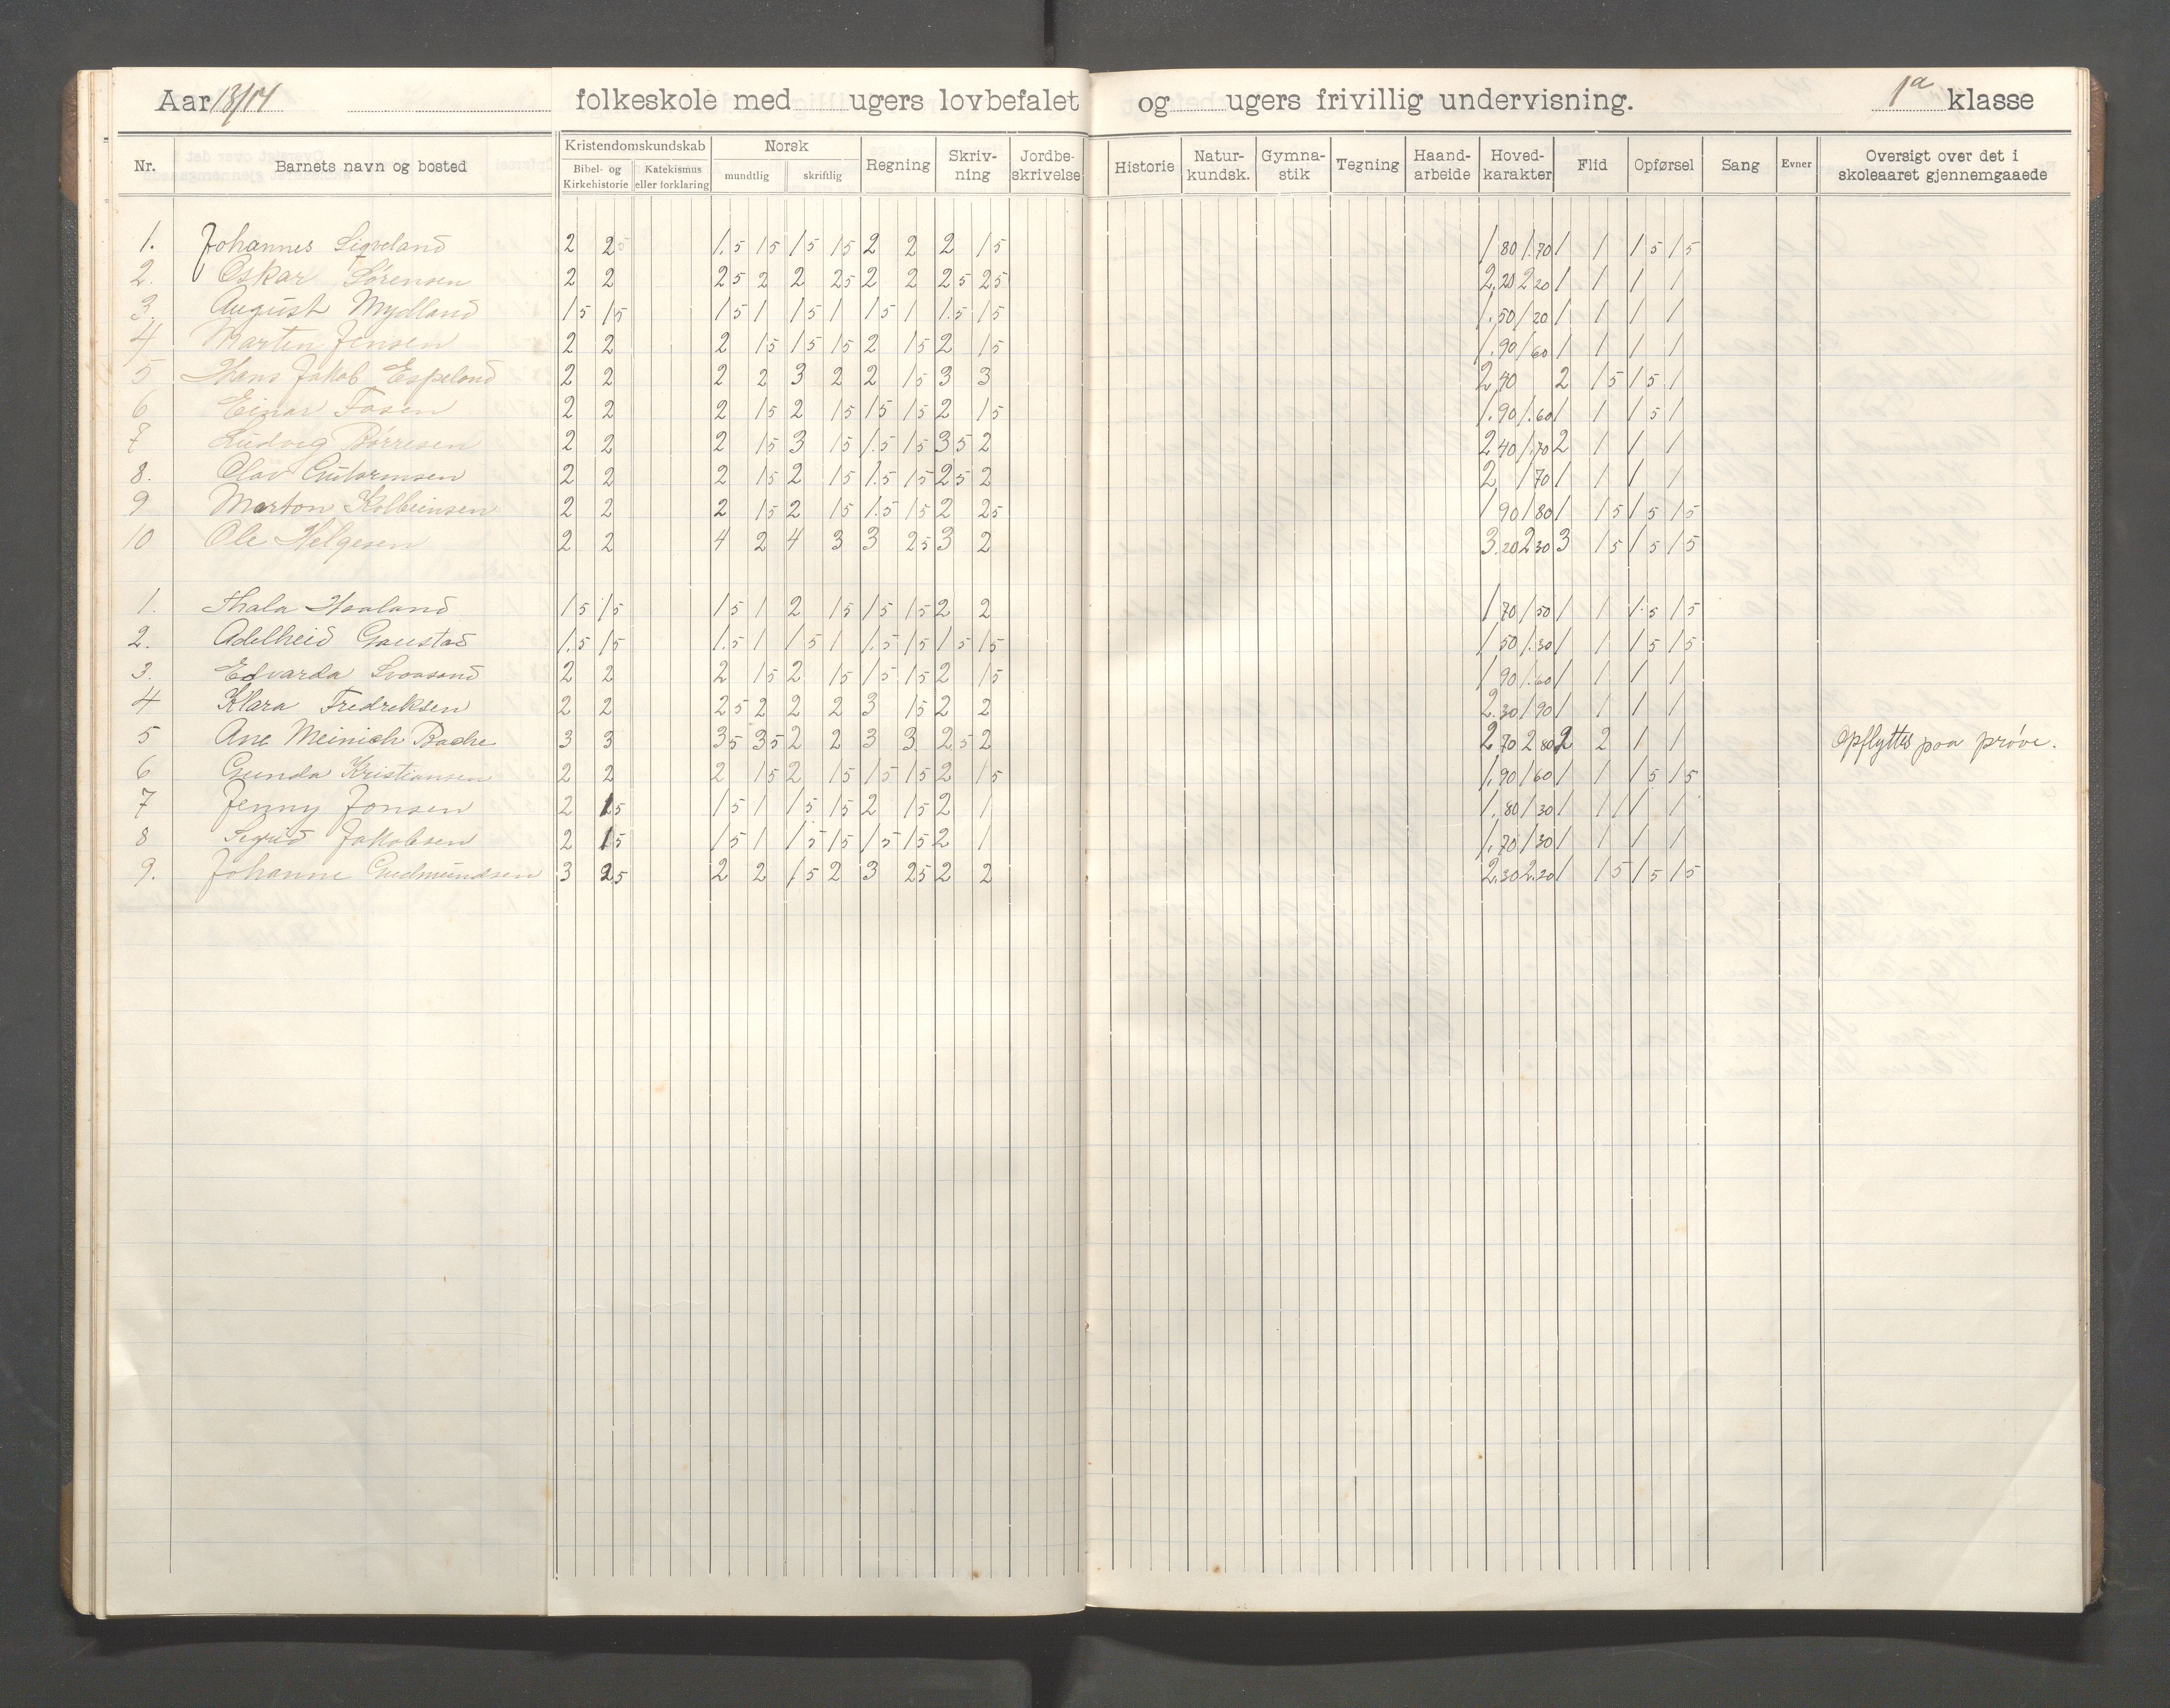 Aar 13/14 folkeskole med ugers lovbefalet og ugers frivillig undervisning. 1a klasse
Nr. Barnets navn og bosted Kristendomskundskab Norsk Regning Skriv-ning Jordbe-skrivelse Historie Natur-kundsk. Gymna-stik Tegning Haand-arbeide Hoved-karakter Flid Opførsel Sang Evner Oversigt over det i skoleaaret gjennemgaaede
Bibel- og Kirkehistorie Katekismus eller forklaring mundtlig skriftlig
1. Johannes Sigveland 2 25 1.5 15 15 15 2 2 2 15 1 80 1.70 1 1 15 15
2. Oskar Sørensen 2 2 25 2 2 25 2 2 25 25 2.20 2 20 1 1 1 1
3. August Mydland 15 15 15 1 15 1 15 1 1.5 15 1.50 1 20 1 1 1 1
4 Martin Jensen 2 2 2 15 15 15 2 15 2 15 1.90 1 60 1 1 1 1
5 Hans Jakob Espeland 2 2 2 2 3 2 2 15 3 3 2 40 2 15 15 1
6 Einar Tosen 2 2 2 15 2 15 15 15 2 15 1.90 1.60 1 1 15 1
7 Ludvig Børresen 2 2 2 15 3 15 1.5 15 35 2 2 40 1.70 2 1 1 1
8. Olav Gutormsen 2 2 2 15 2 15 1.5 15 25 2 2 1 70 1 1 1 1
9 Morton Kolbeinsen 2 2 2 15 2 15 1.5 15 2 25 1 90 1 80 1 15 15 15
10 Ole Helgesen 2 2 4 2 4 3 3 25 3 2 3.20 2 30 3 15 15 15
1. Thala Haaland 15 15 15 1 2 15 15 15 2 2 1 70 1 50 1 1 1.5 15
2. Adelheid Gaustad 1.5 15 1.5 1 15 1 1.5 15 15 15 1 50 1.30 1 1 15 15
3. Edvarda Svaasand 2 2 2 15 2 15 15 15 2 15 1 90 1.60 1 1 1 1
4 Klara Fredreksen 2 2 25 2 2 2 3 15 2 2 2.30 1 90 1 1 1 1
5 Ane Meinich Bache 3 3 35 35 2 2 3 3 25 2 2 70 2 80 2 2 1 1 Opflyttes paa prøve.
6 Gunda Kristiansen 2 2 2 15 2 15 15 15 2 15 1.90 1 60 1 1 15 15
7 Jenny Jonsen 2 15 15 1 15 15 2 15 2 1 1.80 1 30 1 1 1 1
8 Sigrid Jakobsen 2 15 15 1 15 15 15 15 2 1 1.70 1 30 1 1 1 1
9. Johanne Gudmundsen 3 25 2 2 15 2 3 25 2 2 2.30 2.20 1 15 15 15